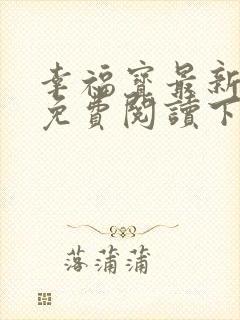 幸福寶最新
免費閱讀下
落蒲蒲